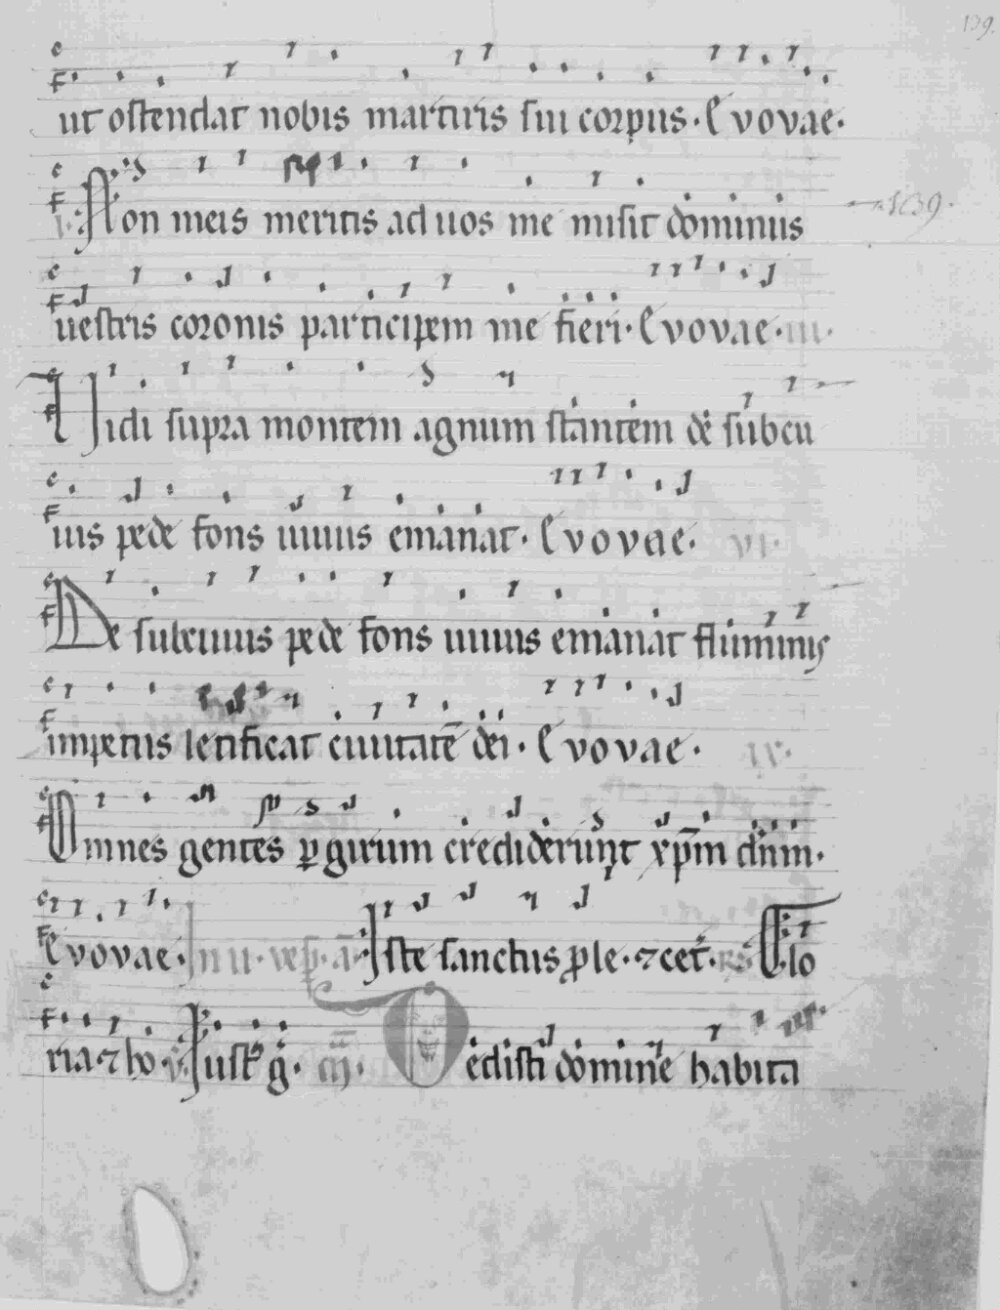 139.
ut ostendat nobis martiris sui corpus. Evovae.
Non meis meritis ad uos me misit dominus
1039.
uestris coronis participem me fieri. Evovae. iii.
Uidi supra montem agnum stantem de subcu
ius pede fons uiuus emanat. Evovae. vi.
De subcuius pede fons uiuus emanat fluminis
impetus letificat ciuitatē dei. Evovae. iv.
Omnes gentes ꝑ girum crediderunt xp̄m dn̄m.
Evovae. Iste sanctus ple. ⁊ cet. Glo
ria. ⁊ ho. Iust g. Dedisti domine habita